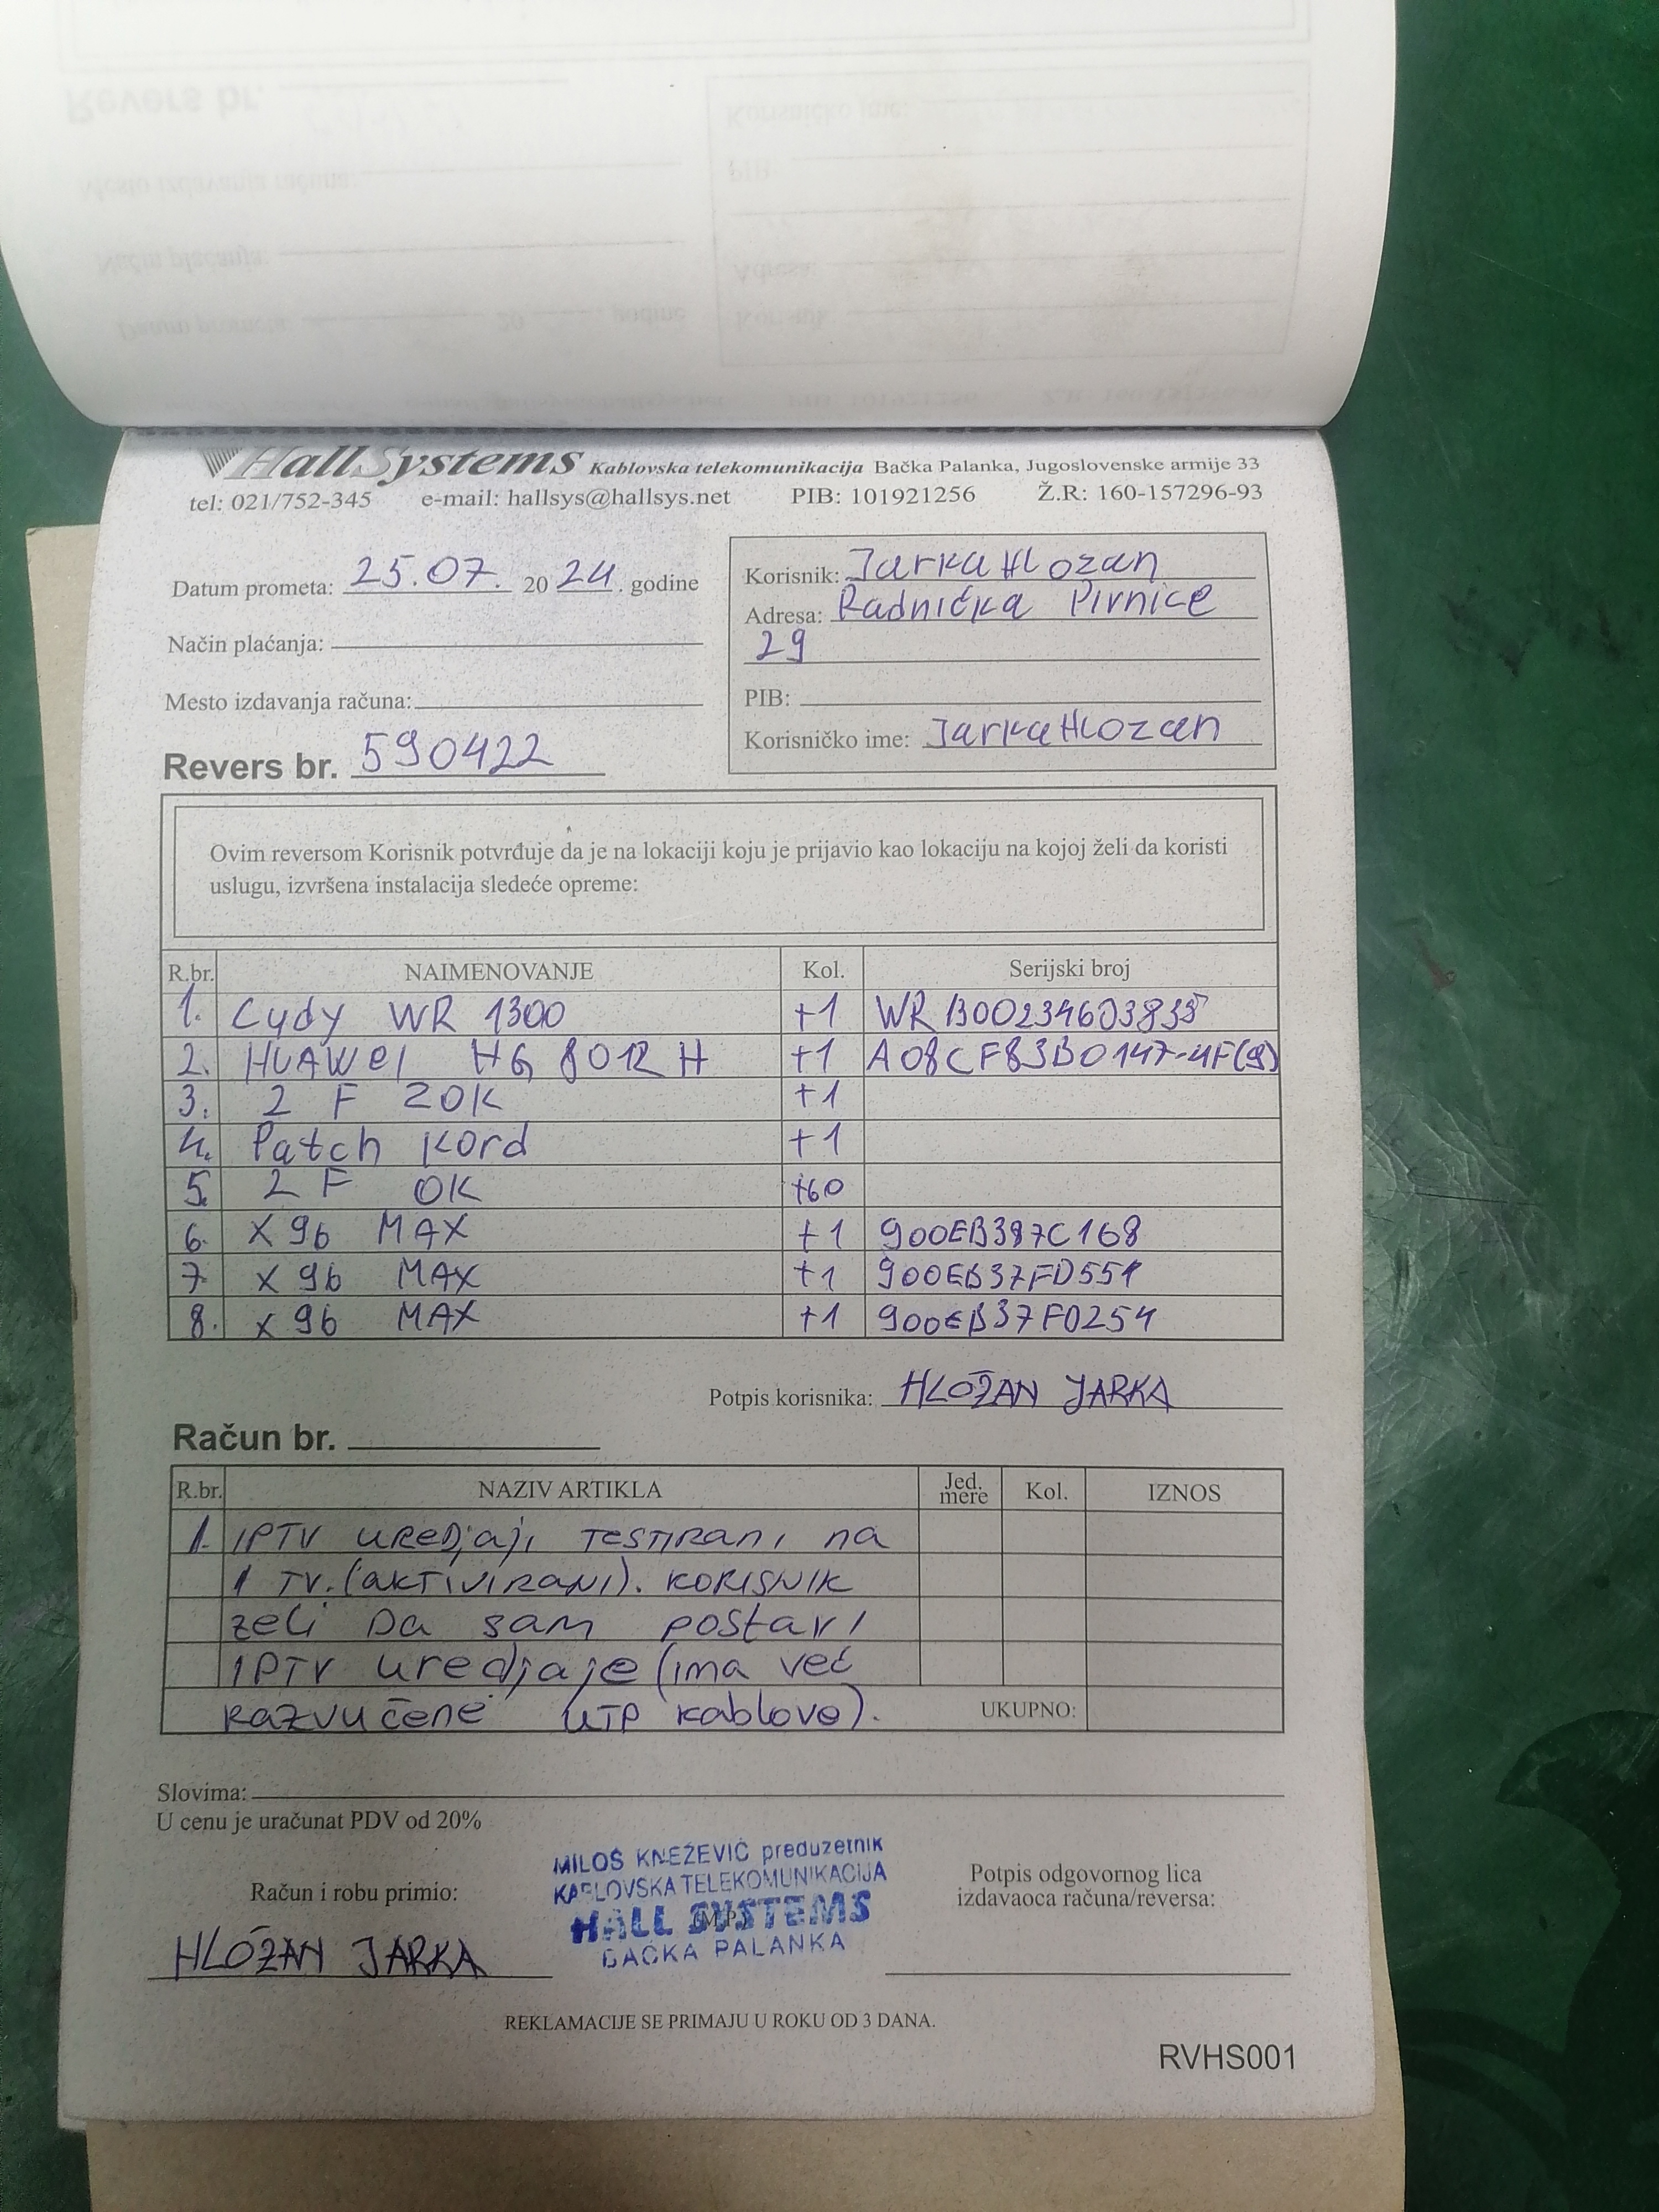 HallSystems Kablovska telekomunikacija Bačka Palanka, Jugoslovenske armije 33
tel: 021/752-345 e-mail: hallsys@hallsys.net PIB: 101921256 Ž.R: 160-157296-93
Datum prometa: 25.07. 20 24. godine
Način plaćanja:
Mesto izdavanja računa:
Revers br. 590422
Korisnik: Jarka Hlozan
Adresa: Radnička Pivnice
29
PIB:
Korisničko ime: JarkaHlozan
Ovim reversom Korisnik potvrđuje da je na lokaciji koju je prijavio kao lokaciju na kojoj želi da koristi
uslugu, izvršena instalacija sledeće opreme:
R.br. NAIMENOVANJE Kol. Serijski broj
1. Cudy WR 1300 +1
2. HUAWEI HG 8012 H +1 A08CF83B0147-4F(9)
3. 2 F ZOK +1
4. Patch kord +1
5. 2 F OK +60
6. X 96 MAX +1 900EB397C168
7. X 96 MAX +1 900EB37FD551
8. X 96 MAX +1 900EB37F0254
Potpis korisnika: HLOŽAN JARKA
Račun br.
R.br. NAZIV ARTIKLA Jed. mere Kol. IZNOS
1. IPTV uredjaji testirani na
1 TV. (aktivirani). korisnik
zeli da sam postavi
IPTV uredjaje (ima već
razvučene UTP kablove).
UKUPNO:
Slovima:
U cenu je uračunat PDV od 20%
Račun i robu primio:
HLOŽAN JARKA
MILOŠ KNEŽEVIĆ preduzetnik
KABLOVSKA TELEKOMUNIKACIJA
HALL SYSTEMS
BAČKA PALANKA
Potpis odgovornog lica
izdavaoca računa/reversa:
REKLAMACIJE SE PRIMAJU U ROKU OD 3 DANA.
RVHS001